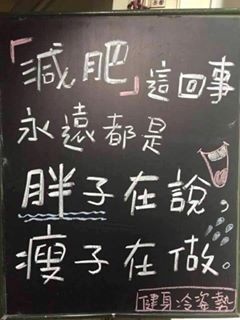 「減肥」這回事
永遠都是
胖子在說，
瘦子在做。
健身冷姿勢